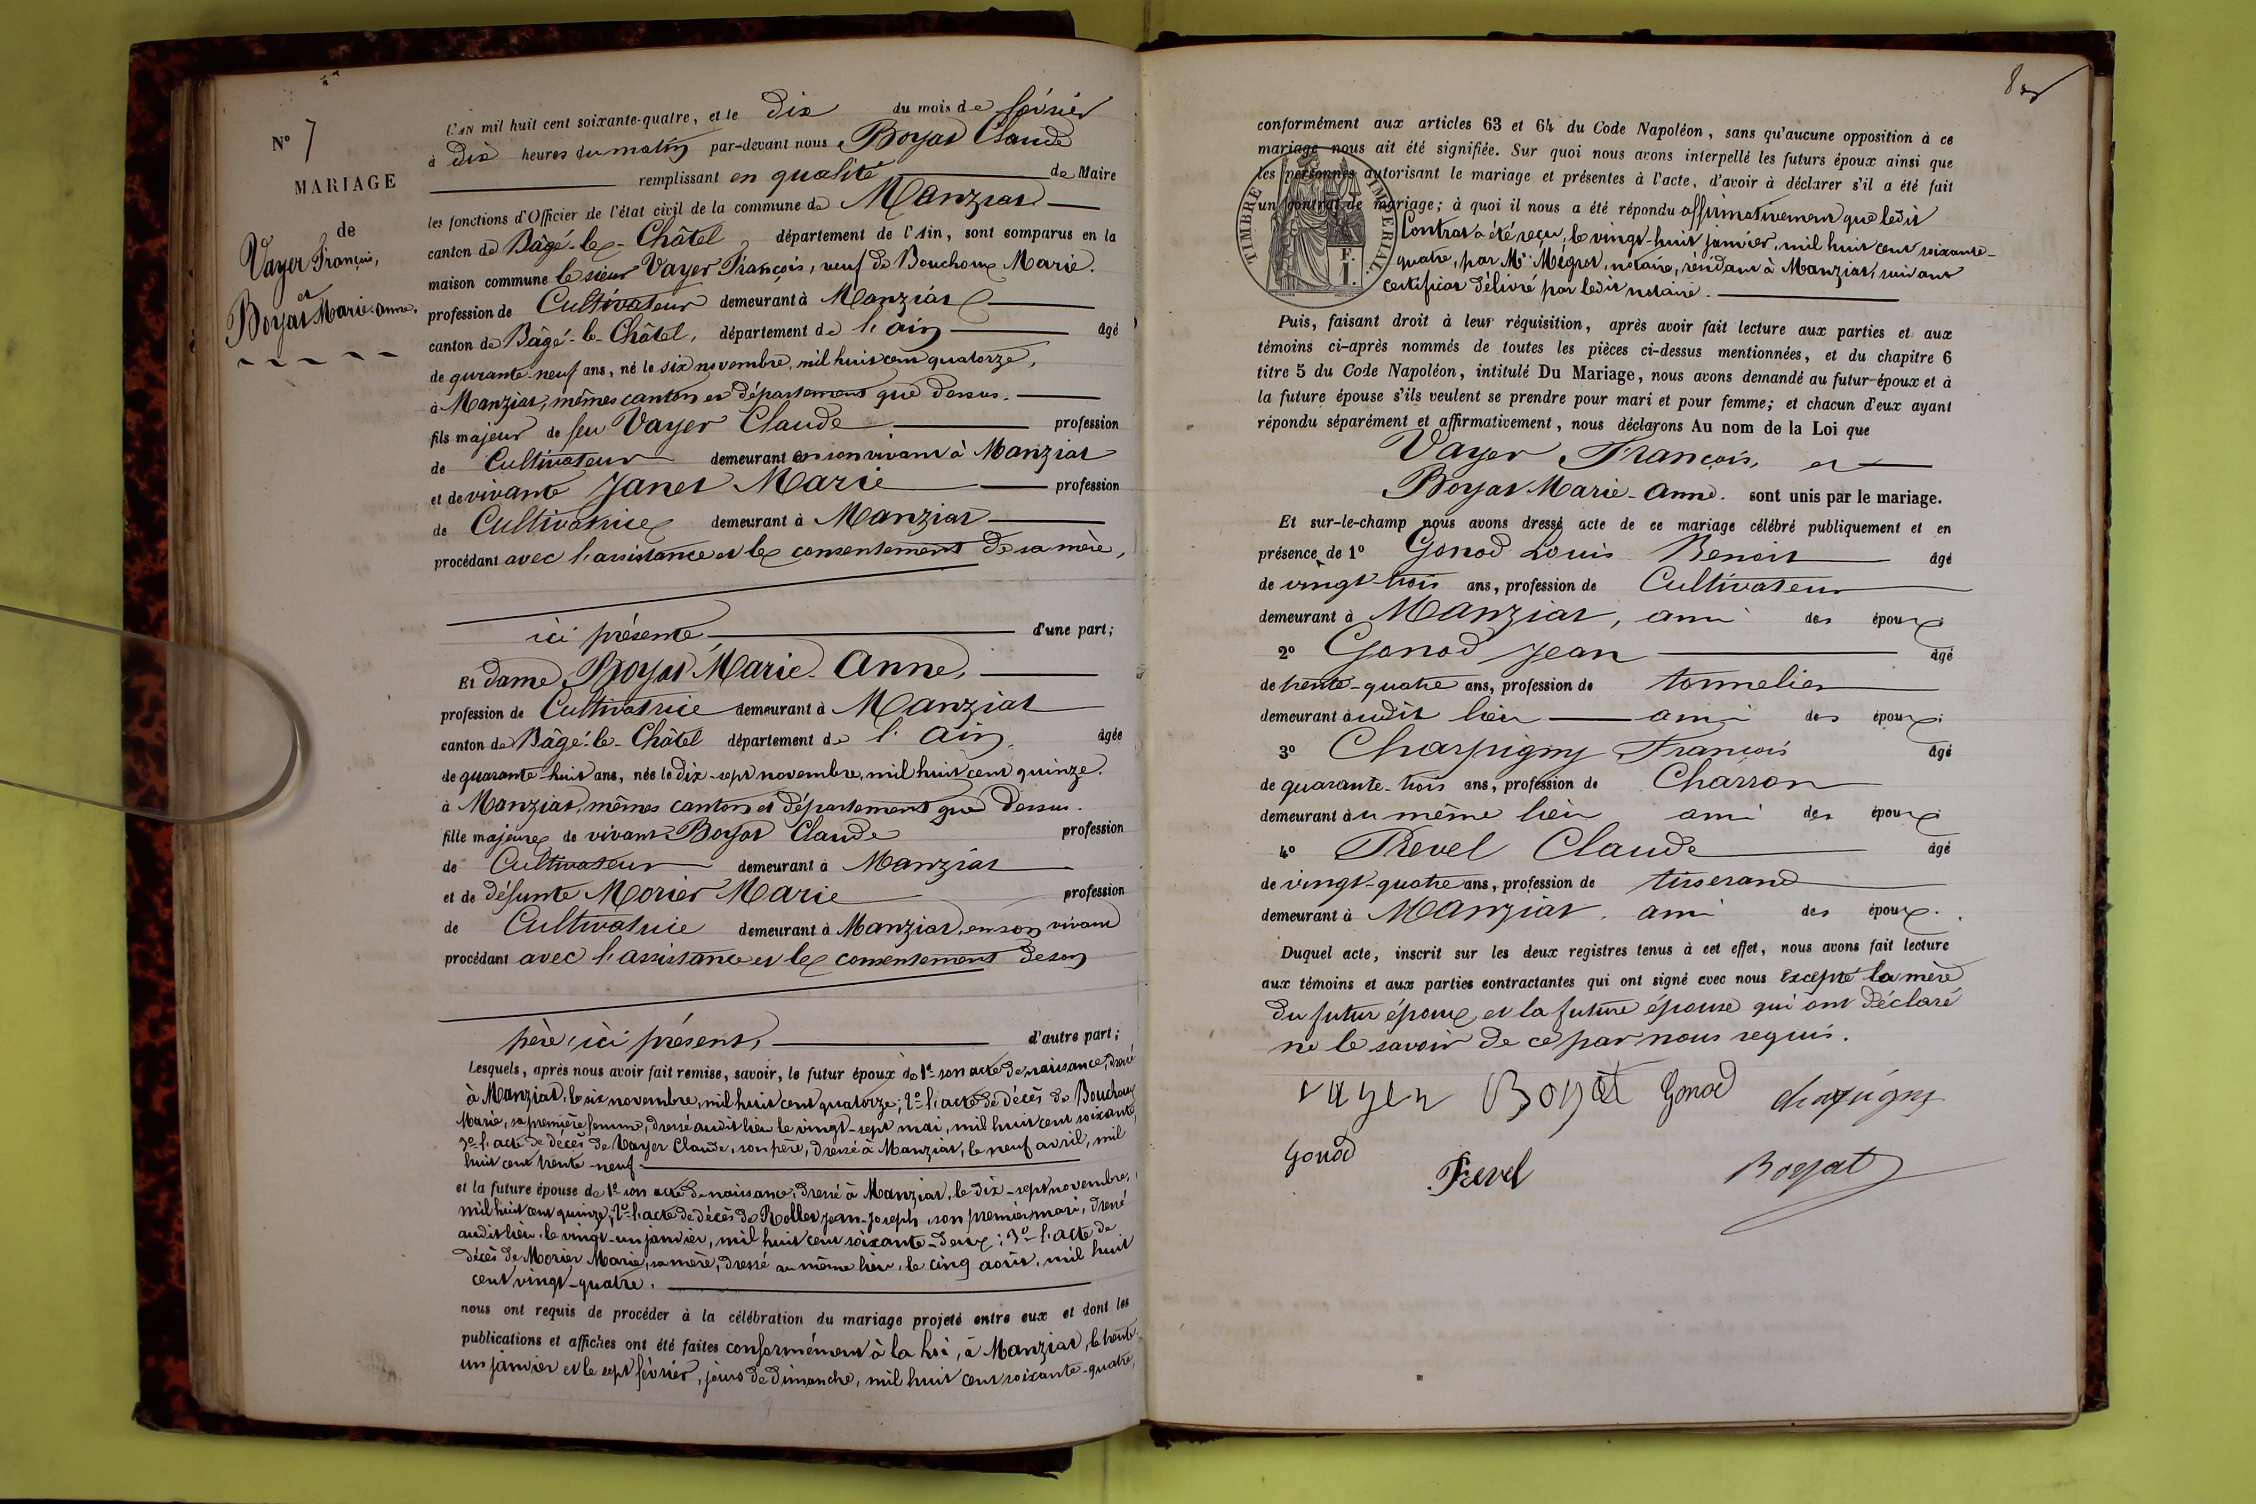 N° 7
MARIAGE
de
Vayer François,
et
Boyat Marie-anne.
L'AN mil huit cent soixante-quatre, et le Dix du mois de février
à Dix heures du matin par-devant nous Boyat Claude
remplissant en qualité de Maire
les fonctions d'Officier de l'état civil de la commune de Manziat
canton de Bâgé-le-Châtel, département de l'Ain, sont comparus en la
maison commune le sieur Vayer François, veuf de Bouchoux Marie.
profession de Cultivateur demeurant à Manziat
canton de Bâgé-le-Châtel, département de l'ain âgé
de qurante-neuf ans, né le six novembre, mil huit cent quatorze,
à Manziat, mêmes canton et département que dessus.
fils majeur de feu Vayer Claude profession
de Cultivateur demeurant en son vivant à Manziat
et de vivante Janet Marie profession
de Cultivatrice demeurant à Manziat
procédant avec l'assistance et le consentement de sa mère,
ici présente d'une part;
Et dame Boyat Marie-Anne,
profession de Cultivatrice demeurant à Manziat
canton de Bâgé-le-Châtel département de l'Ain, âgée
de quarante-huit ans, née le dix-sept novembre, mil huit cent quinze.
à Manziat, mêmes canton et département que dessus.
fille majeure de vivant Boyat Claude profession
de Cultivateur demeurant à Manziat
et de défunte Morier Marie profession
de Cultivatrice demeurant à Manziat, en son vivant
procédant avec l'assistance et le consentement de son
père, ici présent, d'autre part;
Lesquels, après nous avoir fait remise, savoir, le futur époux de 1° son acte de naissance, dressé
à Manziat, le six novembre, mil huit cent quatorze; 2° l'acte de décès de Bouchoux
Marie, sa première femme, dressé audit lieu le vingt-sept mai, mil huit cent soixante,
3° l'acte de décès de Vayer Claude, son père, dressé à Manziat, le neuf avril, mil
huit cent trente-neuf
et la future épouse de 1° son acte de naissance, dressé à Manziat, le dix-sept novembre,
mil huit cent quinze; 2° l'acte de décès de Rollet Jean-Joseph, son premier mari, dressé
audit lieu, le vingt-un janvier, mil huit cent soixante-deux; 3° l'acte de
décès de Morier Marie, sa mère, dressé au même lieu, le cinq août, mil huit
cent vingt-quatre.
nous ont requis de procéder à la célébration du mariage projeté entre eux et dont les
publications et affiches ont été faites conformément à la loi, à Manziat, le trente-
un janvier et le sept février, jours de dimanche, mil huit cent soixante-quatre,
conformément aux articles 63 et 64 du Code Napoléon, sans qu'aucune opposition à ce
mariage nous ait été signifiée. Sur quoi nous avons interpellé les futurs époux ainsi que
les personnes autorisant le mariage et présentes à l'acte, d'avoir à déclarer s'il a été fait
un contrat de mariage; à quoi il nous a été répondu affirmativement que ledit
Contrat a été reçu, le vingt-huit janvier, mil huit cent soixante-
quatre, par Me Mégret, notaire, résidant à Manziat, suivant
certificat délivré par ledit notaire.
TIMBRE IMPERIAL.
F.
1.
Puis, faisant droit à leur réquisition, après avoir fait lecture aux parties et aux
témoins ci-après nommés de toutes les pièces ci-dessus mentionnées, et du chapitre 6
titre 5 du Code Napoléon, intitulé Du Mariage, nous avons demandé au futur époux et à
la future épouse s'ils veulent se prendre pour mari et pour femme; et chacun d'eux ayant
répondu séparément et affirmativement, nous déclarons Au nom de la Loi que
Vayer François, et
Boyat Marie-Anne. sont unis par le mariage.
Et sur-le-champ nous avons dressé acte de ce mariage célébré publiquement et en
présence de 1° Gonod Louis Benoit âgé
de vingt-trois ans, profession de Cultivateur
demeurant à Manziat, ami des époux;
2° Gonod Jean âgé
de trente-quatre ans, profession de tonnelier
demeurant audit lieu ami des époux;
3° Charpigny François âgé
de quarante-trois ans, profession de Charron
demeurant au même lieu ami des époux;
4° Prevel Claude âgé
de vingt-quatre ans, profession de tisserand
demeurant à Manziat, ami des époux.
Duquel acte, inscrit sur les deux registres tenus à cet effet, nous avons fait lecture
aux témoins et aux parties contractantes qui ont signé avec nous excepté la mère
du futur époux et la future épouse qui ont déclaré
ne le savoir de ce par nous requis.
vayer Boyat Gonod charpigny
Gonod Prevel Boyat